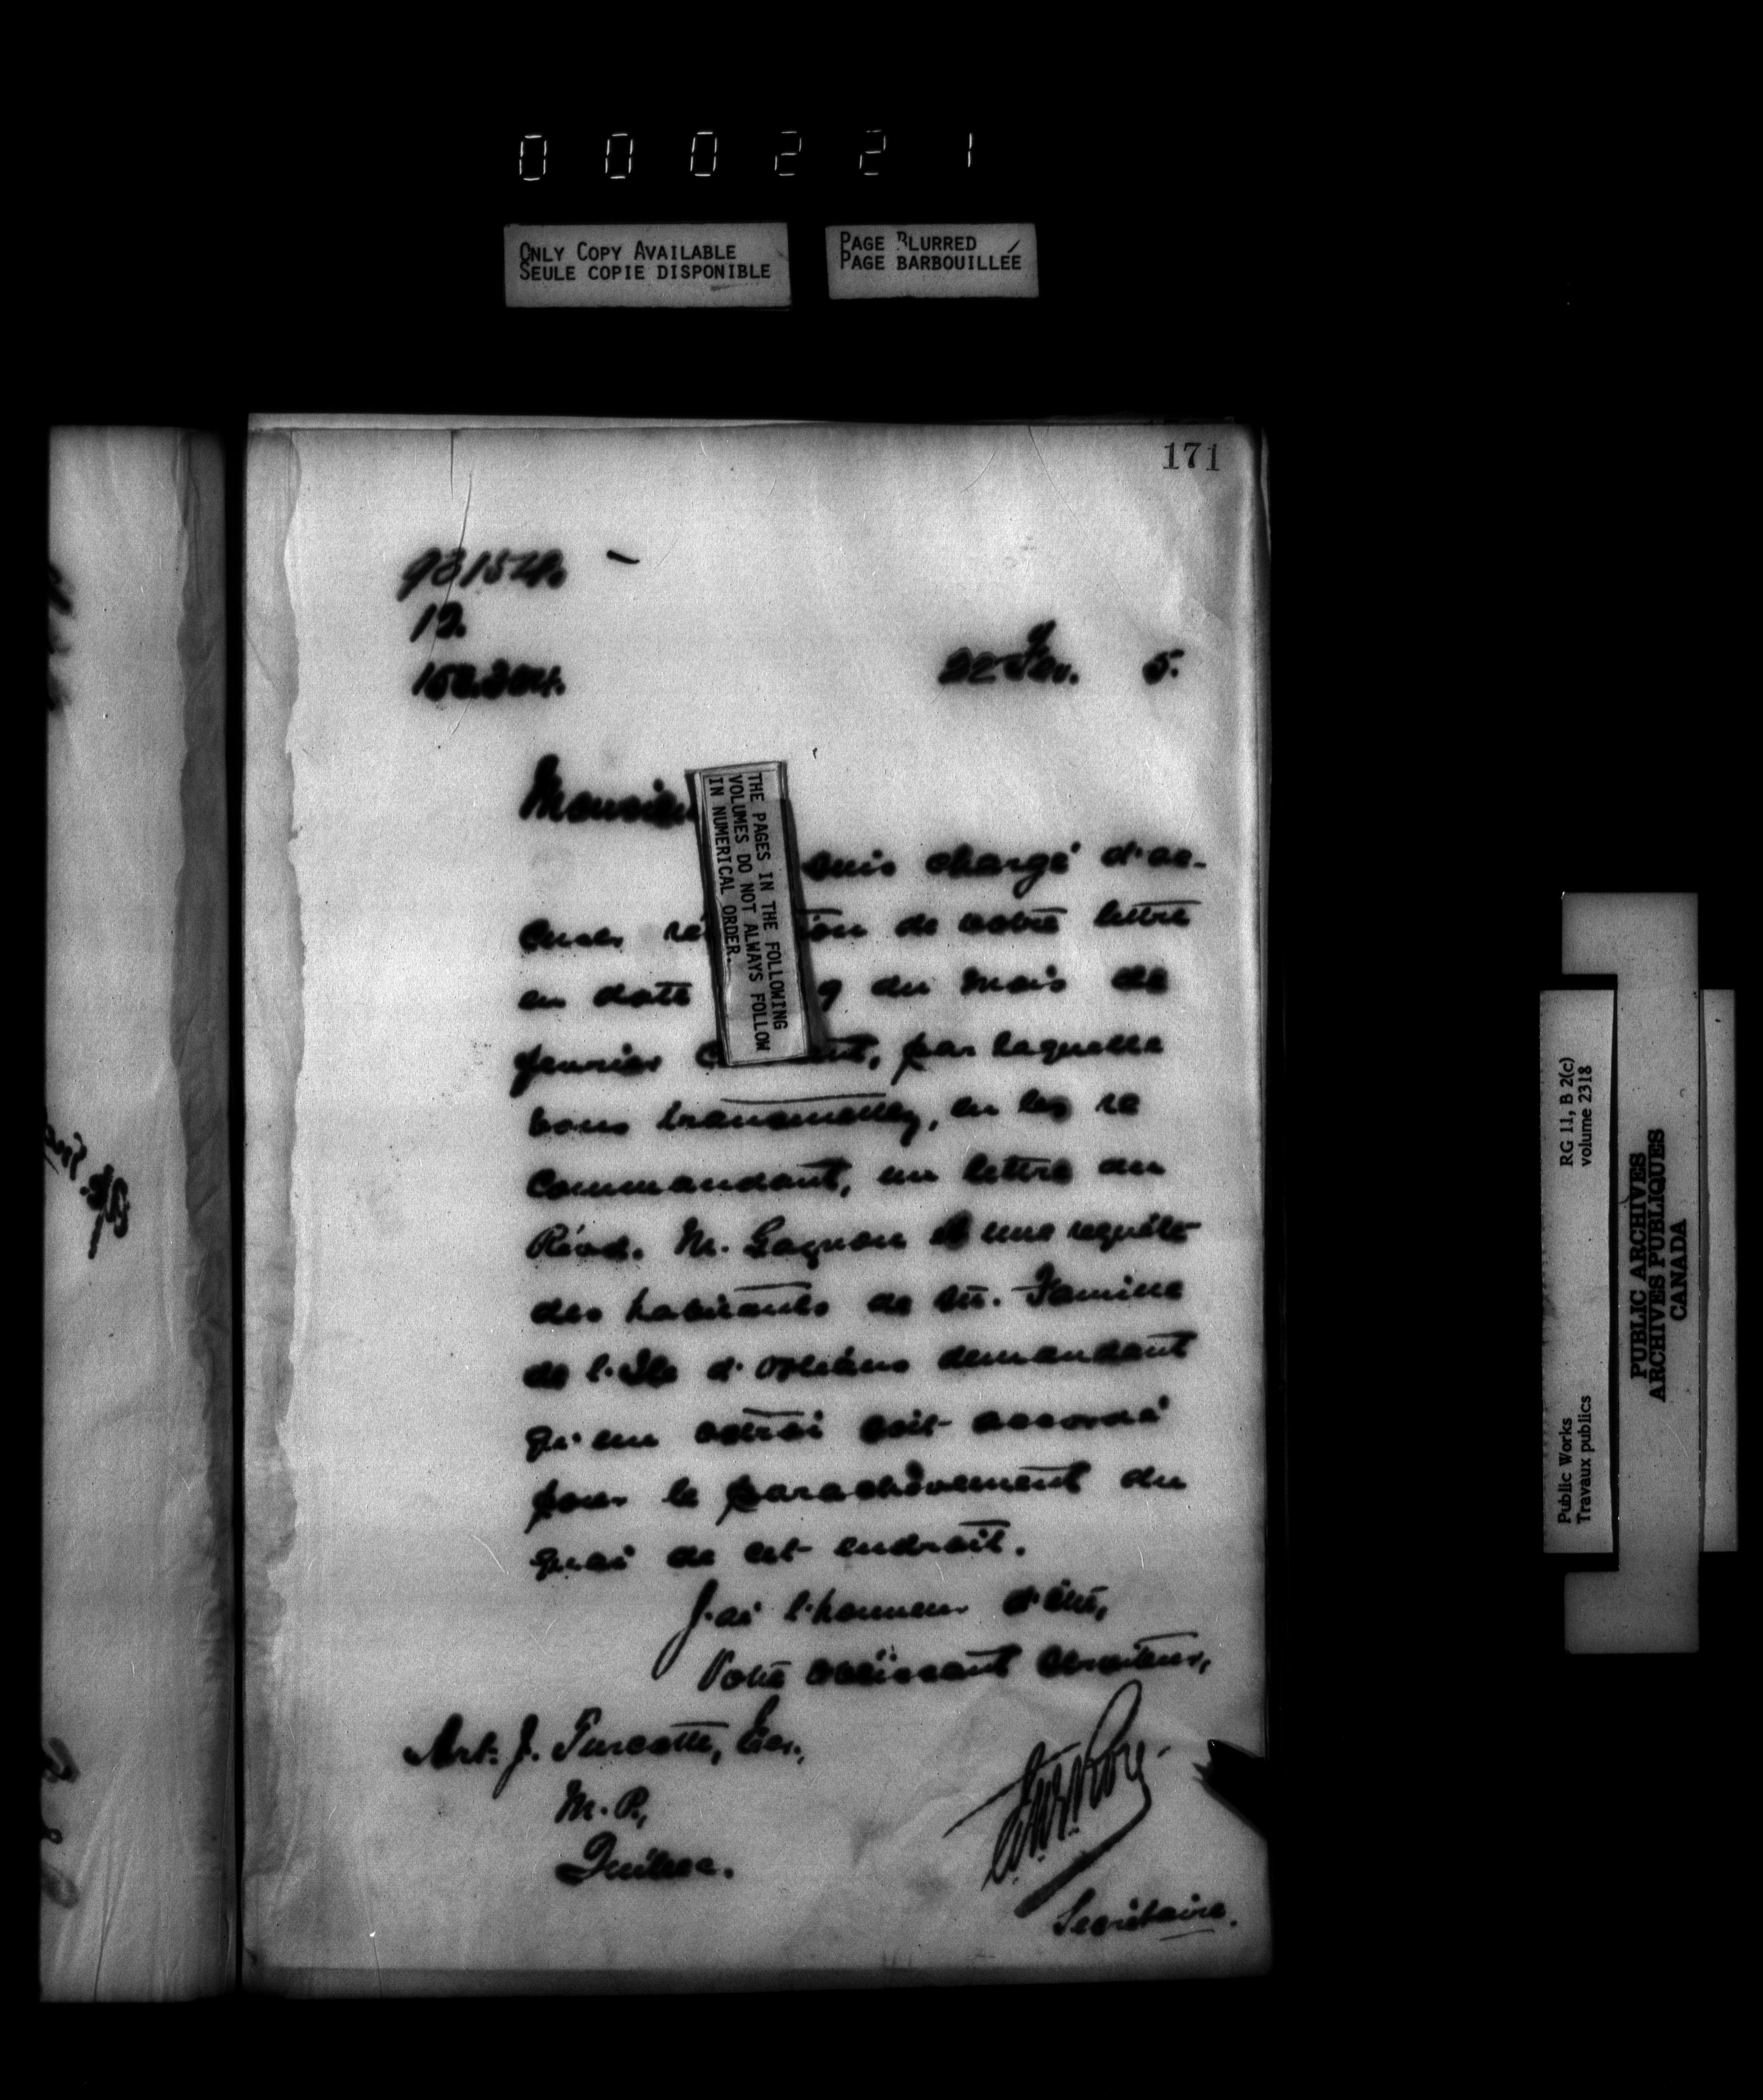 000221
ONLY COPY AVAILABLE
SEULE COPIE DISPONIBLE
PAGE BLURRED
PAGE BARBOUILLÉE
171
12.
22 Fev. 5.
Monsieu
suis chargé d'ac-
cuser ré ion de votre lettre
en date 9 du mois de
fevrier c nt, par laquelle
vous transmettez, en les re
commandant, un lettre du
Révd. M. Gagnon et une requête
des habitants de Ste. Famille
de l'Ile d'Orléans demandant
qu'un octroi soit accordé
pour le parachèvement du
quai de cet endroit.
J'ai l'honneur d'être,
Votre obéissant serviteur,
Art. J. Turcotte, Ecr.,
M. P.,
Québec.
Secrétaire.
THE PAGES IN THE FOLLOWING
VOLUMES DO NOT ALWAYS FOLLOW
IN NUMERICAL ORDER.
RG 11, B 2(c)
volume 2318
Public Works
Travaux publics
PUBLIC ARCHIVES
ARCHIVES PUBLIQUES
CANADA